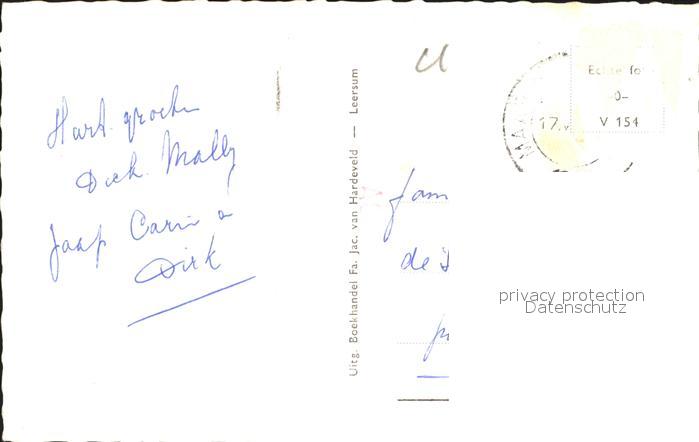 Hart. groeten
Dick. Mally
Jaap Carin a
Dirk
Uitg. Boekhandel Fa. Jac. van Hardeveld — Leersum
Echte fo
-0-
V 154
17.
fam
de
privacy protection
Datenschutz